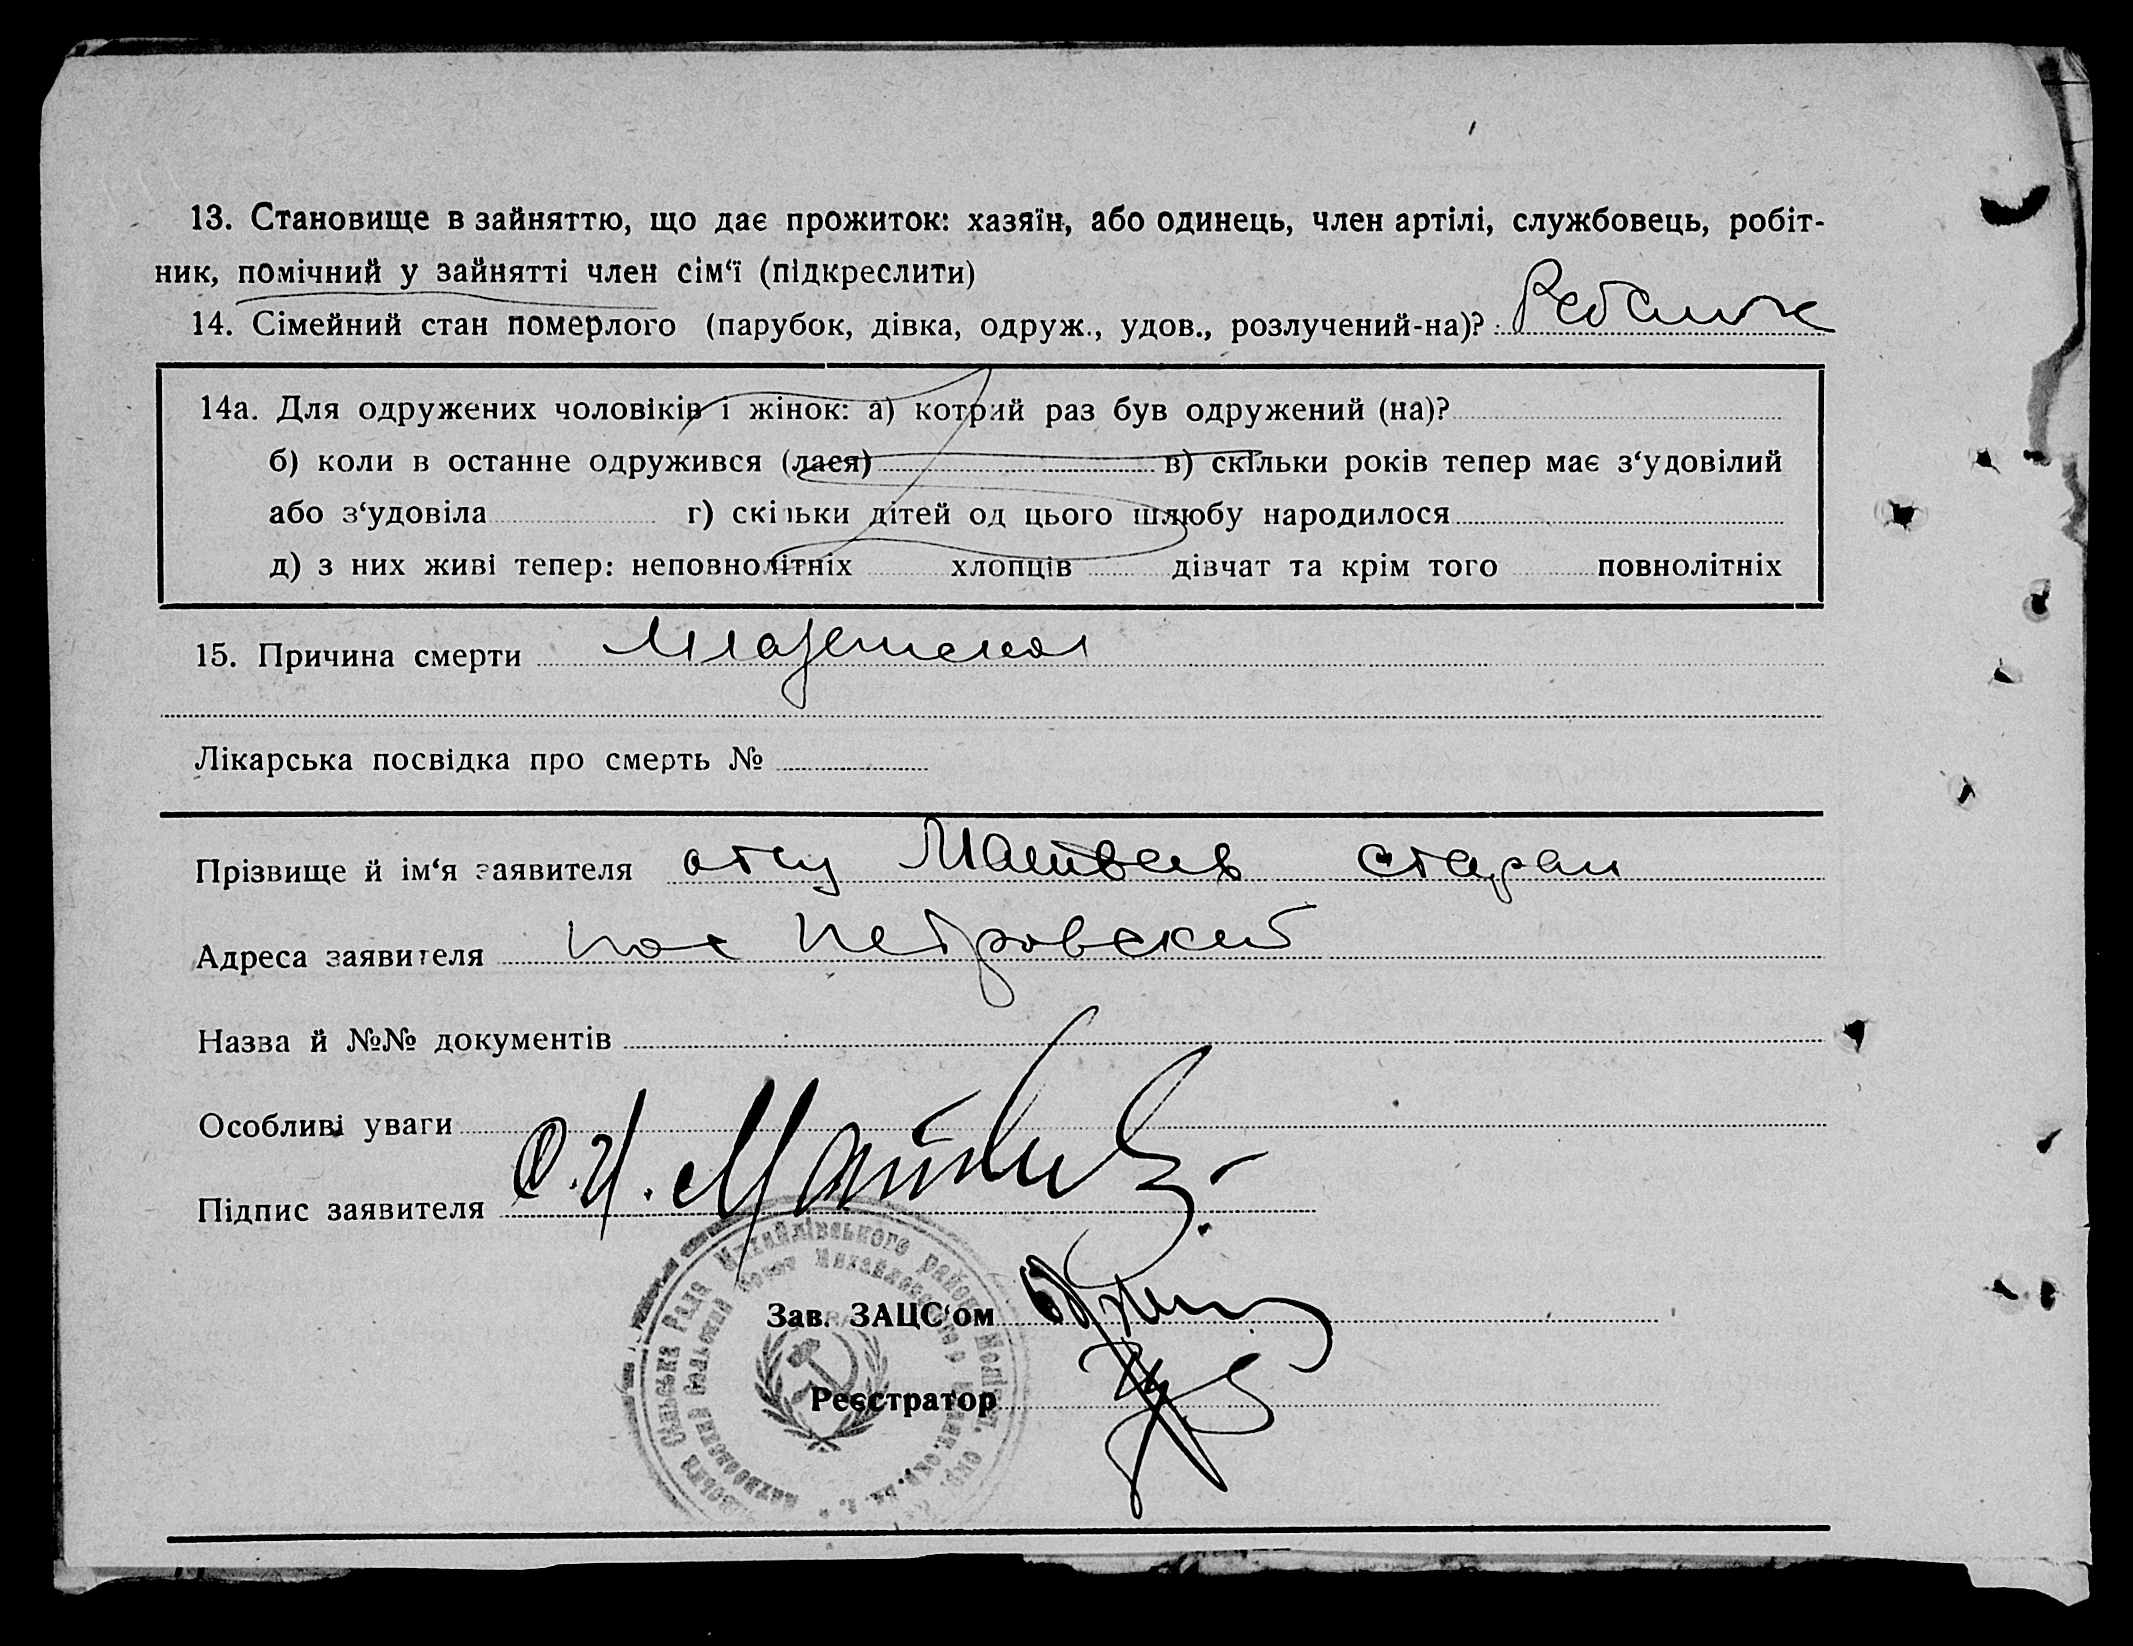 13. Становище в зайняттю, що дає прожиток: хазяїн, або одинець, член артілі, службовець, робіт-
ник, помічний у зайнятті член сім‘ї (підкреслити)
14. Сімейний стан померлого (парубок, дівка, одруж., удов., розлучений-на)?
14а. Для одружених чоловіків і жінок: а) котрий раз був одружений (на)?
б) коли в останне одружився (лася) в) скільки років тепер має з‘удовілий
або з‘удовіла г) скільки дітей од цього шлюбу народилося
д) з них живі тепер: неповнолітніх хлопців дівчат та крім того повнолітніх
15. Причина смерти
Лікарська посвідка про смерть №
Прізвище й ім‘я заявителя отец Матвеев
Адреса заявителя пос Петровский
Назва й №№ документів
Особливі уваги
Підпис заявителя
Сільська Рада Михайлівського району
Зав. ЗАЦС‘ом
Реєстратор